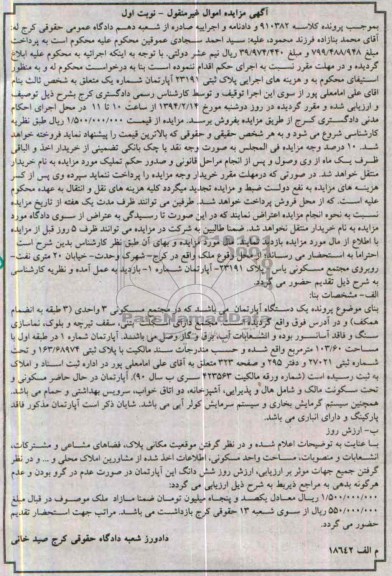 آگهی مزایده اموال غیرمنقول - نوبت اول
بموجب پرونده کلاسه ۹۱۰۳۸۲ و دادنامه و اجراییه صادره از شعبه دهم دادگاه عمومی حقوقی کرج له:
آقای محمد بنازاده فرزند محمود، علیه: سید احمد سجادی عموقین محکوم علیه محکوم است به پرداخت
مبلغ ۷۹۹/۴۸۸/۹۴۸ و مبلغ ۳۹/۹۷۴/۴۴۰ ریال نیم عشر دولتی. با توجه به اینکه اجرائیه به محکوم علیه ابلاغ
گردیده و در مهلت مقرر نسبت به اجرای حکم اقدام ننموده است بنا به درخواست محکوم له و به منظور
استیفای محکوم به و هزینه های اجرایی پلاک ثبتی ۲۳۱۹۱ آپارتمان شماره یک متعلق به شخص ثالث بنام
آقای علی امامعلی پور از سوی این اجرا توقیف و توسط کارشناس رسمی دادگستری کرج بشرح ذیل توصیف
و ارزیابی شده و مقرر گردیده در روز دوشنبه مورخ ۱۳۹۴/۲/۱۴ از ساعت ۱۰ تا ۱۱ در محل اجرای احکام
مدنی دادگستری کرج از طریق مزایده بفروش برسد. مزایده از قیمت ۱/۵۰۰/۰۰۰/۰۰۰ ریال طبق نظریه
کارشناسی شروع می شود و به هر شخص حقیقی و حقوقی که بالاترین قیمت را پیشنهاد نماید فروخته خواهد
شد. ۱۰ درصد وجه مزایده فی المجلس به صورت وجه نقد یا چک بانکی تضمینی از خریدار اخذ و الباقی
ظرف یک ماه از وی وصول و پس از انجام مراحل قانونی و صدور حکم تملیک مورد مزایده به نام خریدار
منتقل خواهد شد. در صورتی که درمهلت مقرر خریدار وجه مزایده را پرداخت ننماید سپرده وی پس از کسر
هزینه های مزایده به نفع دولت ضبط و مزایده تجدید میگردد کلیه هزینه های نقل و انتقال به عهده محکوم
علیه است. که از محل فروش پرداخت خواهد شد. طرفین می توانند ظرف مدت یک هفته از تاریخ مزایده
نسبت به نحوه انجام مزایده اعتراض نمایند که در این صورت تا رسیدگی به اعتراض از سوی دادگاه مورد
مزایده به نام خریدار منتقل نخواهد شد. ضمنا طالبین به شرکت در مزایده می توانند ظرف ۵ روز قبل از مزایده
با اطلاع از مال مورد مزایده بازدید نمایند. مال مورد مزایده و بهای آن طبق نظر کارشناس بدین شرح است
احتراما به استحضار می رساند: محل وقوع ملک واقع در کرج- شهرک وحدت- خیابان ۲۰ متری نفت-
روبروی مجتمع مسکونی یاس- پلاک ۲۳۱۹۱- آپارتمان شماره ۱- بازدید به عمل آمده و نظریه کارشناسی
به شرح ذیل تقدیم حضور می گردد.
الف- مشخصات بنا:
بنای موضوع پرونده یک دستگاه آپارتمان می باشد که در مجتمع مسکونی ۳ واحدی (۳ طبقه به انضمام
همکف) و در آدرس فوق واقع گردیده است. مجتمع دارای اسکلت بتنی، سقف تیرچه و بلوک، نماسازی
سنگ و فاقد آسانسور بوده و انشعابات آب، برق و گاز وصل می باشند. آپارتمان شماره ۱ در طبقه اول با
مساحت ۱۰۳/۶۰ مترمربع واقع شده و حسب مندرجات سند مالکیت با پلاک ثبتی ۱۶۳/۶۸۹۷۴ و تحت
شماره ثبتی ۲۷۰۲۱ و دفتر ۲۹۵ و صفحه ۳۲۳ متعلق به آقای علی امامعلی پور در اداره ثبت اسناد و املاک
به ثبت رسیده است (شماره ورقه مالکیت ۲۲۳۵۶۳ سری ب سال ۹۰). آپارتمان در حال حاضر مسکونی و
تحت سکونت مالک و شامل هال و پذیرایی، آشپزخانه، دو اتاق خواب، سرویس بهداشتی و حمام می باشد.
همچنین سیستم گرمایش بخاری و سیستم سرمایش کولر آبی می باشد. شایان ذکر است آپارتمان مذکور فاقد
پارکینگ و دارای انباری می باشد.
ب- ارزش روز
با عنایت به توضیحات اعلام شده و در نظر گرفتن موقعیت مکانی پلاک، فضاهای مشاعی و مشترکات،
انشعابات و منصوبات، مساحت واحد مسکونی، اطلاعات اخذ شده از مشاورین املاک محلی و ... و در نظر
گرفتن جمیع جهات موثر بر ارزیابی، ارزش روز شش دانگ این آپارتمان در صورت عدم در گرو بودن و عدم
هرگونه بدهی به مراجع ذیربط به شرح ذیل ارزیابی می گردد:
۱/۵۰۰/۰۰۰/۰۰۰ ریال معادل یکصد و پنجاه میلیون تومان ضمنا مازاد ملک موصوف در قبال مبلغ
۵۵۰/۰۰۰/۰۰۰ ریال از سوی شعبه ۱۳ حقوقی کرج بازداشت می باشد. مراتب جهت استحضار تقدیم
حضور می گردد.
دادورز شعبه دادگاه حقوقی کرج صید خانی
م الف ۱۸۶۴۲